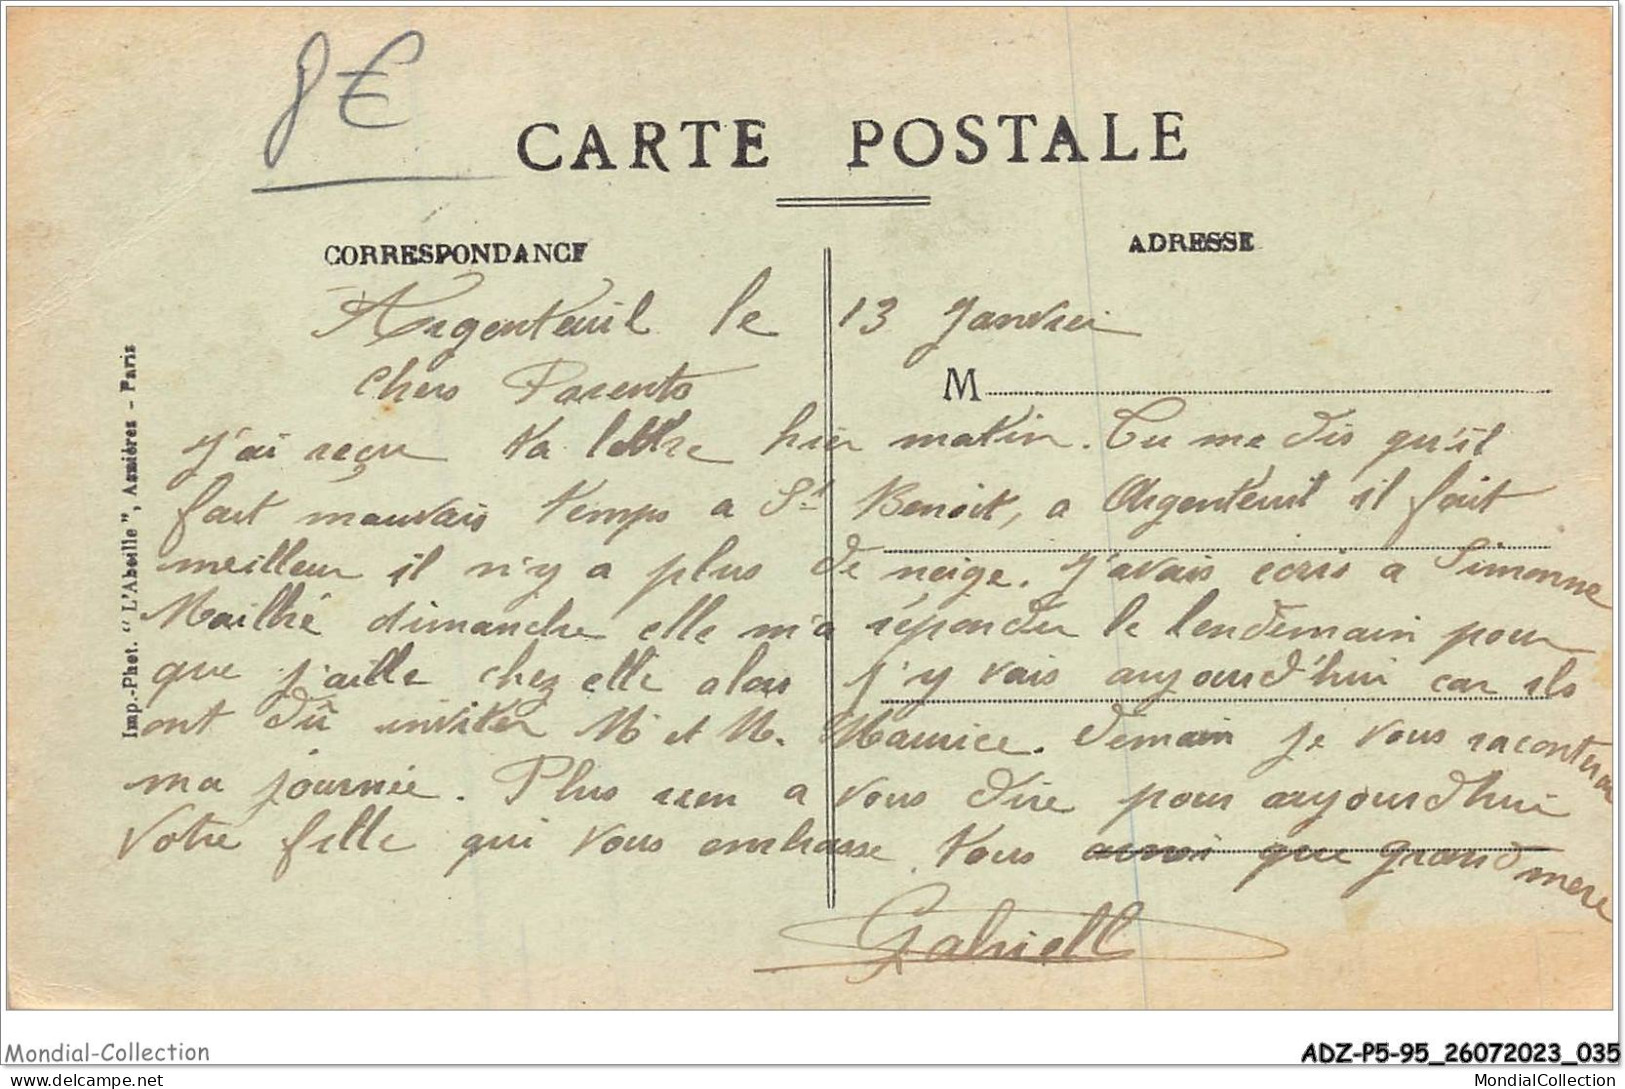 8€
CARTE POSTALE
CORRESPONDANCE
ADRESSE
Argenteuil le 13 Janvier
Chers Parents
M
J'ai reçu ta lettre hier matin. Tu me dis qu'il
fait mauvais temps a St Benoit, a Argenteuil il fait
meilleur il n'y a plus de neige. J'avais ecris a Simonne
Mailhé dimanche elle m'a répondu le lendemain pour
que j'aille chez elle alors j'y vais aujourd'hui car ils
ont dû inviter M et M. Maurice. Demain je vous raconterai
ma journée. Plus rien a vous dire pour aujourdhui
Votre fille qui vous embrasse tous ainsi que grand mere
Gabrielle
Imp.-Phot. "L'Abeille", Asnières - Paris
Mondial-Collection
ADZ-P5-95_26072023_035
delcampe.net
MondialCollection